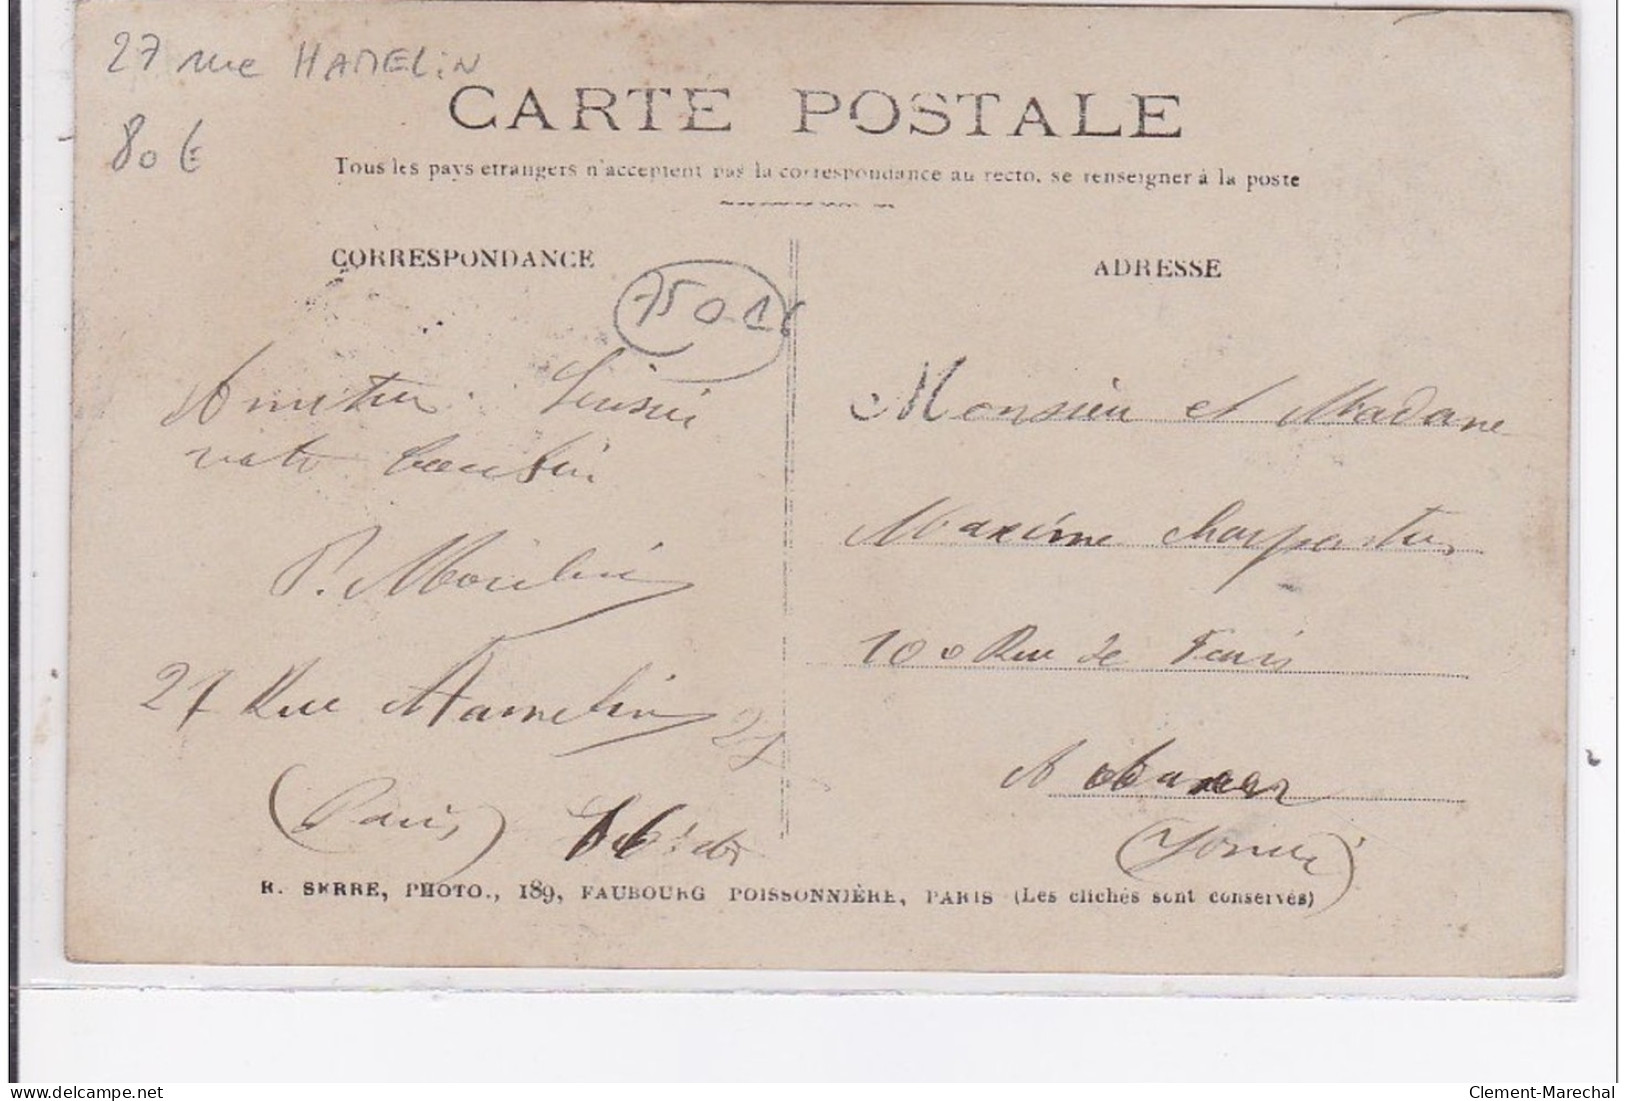 27 rue HAMELiN
80 €
CARTE POSTALE
Tous les pays etrangers n'acceptent pas la correspondance au recto, se renseigner à la poste
CORRESPONDANCE
ADRESSE
75016
votre Cousin
P. Moulin
27 Rue Hamelin
27
(Paris)
Monsieur et Madame
Maxime Charpentier
100 Rue de Paris
A
(Yonne)
R. SERRE, PHOTO., 189, FAUBOURG POISSONNIÈRE, PARIS (Les clichés sont conservés)
delcampe.net
Clement-Marechal